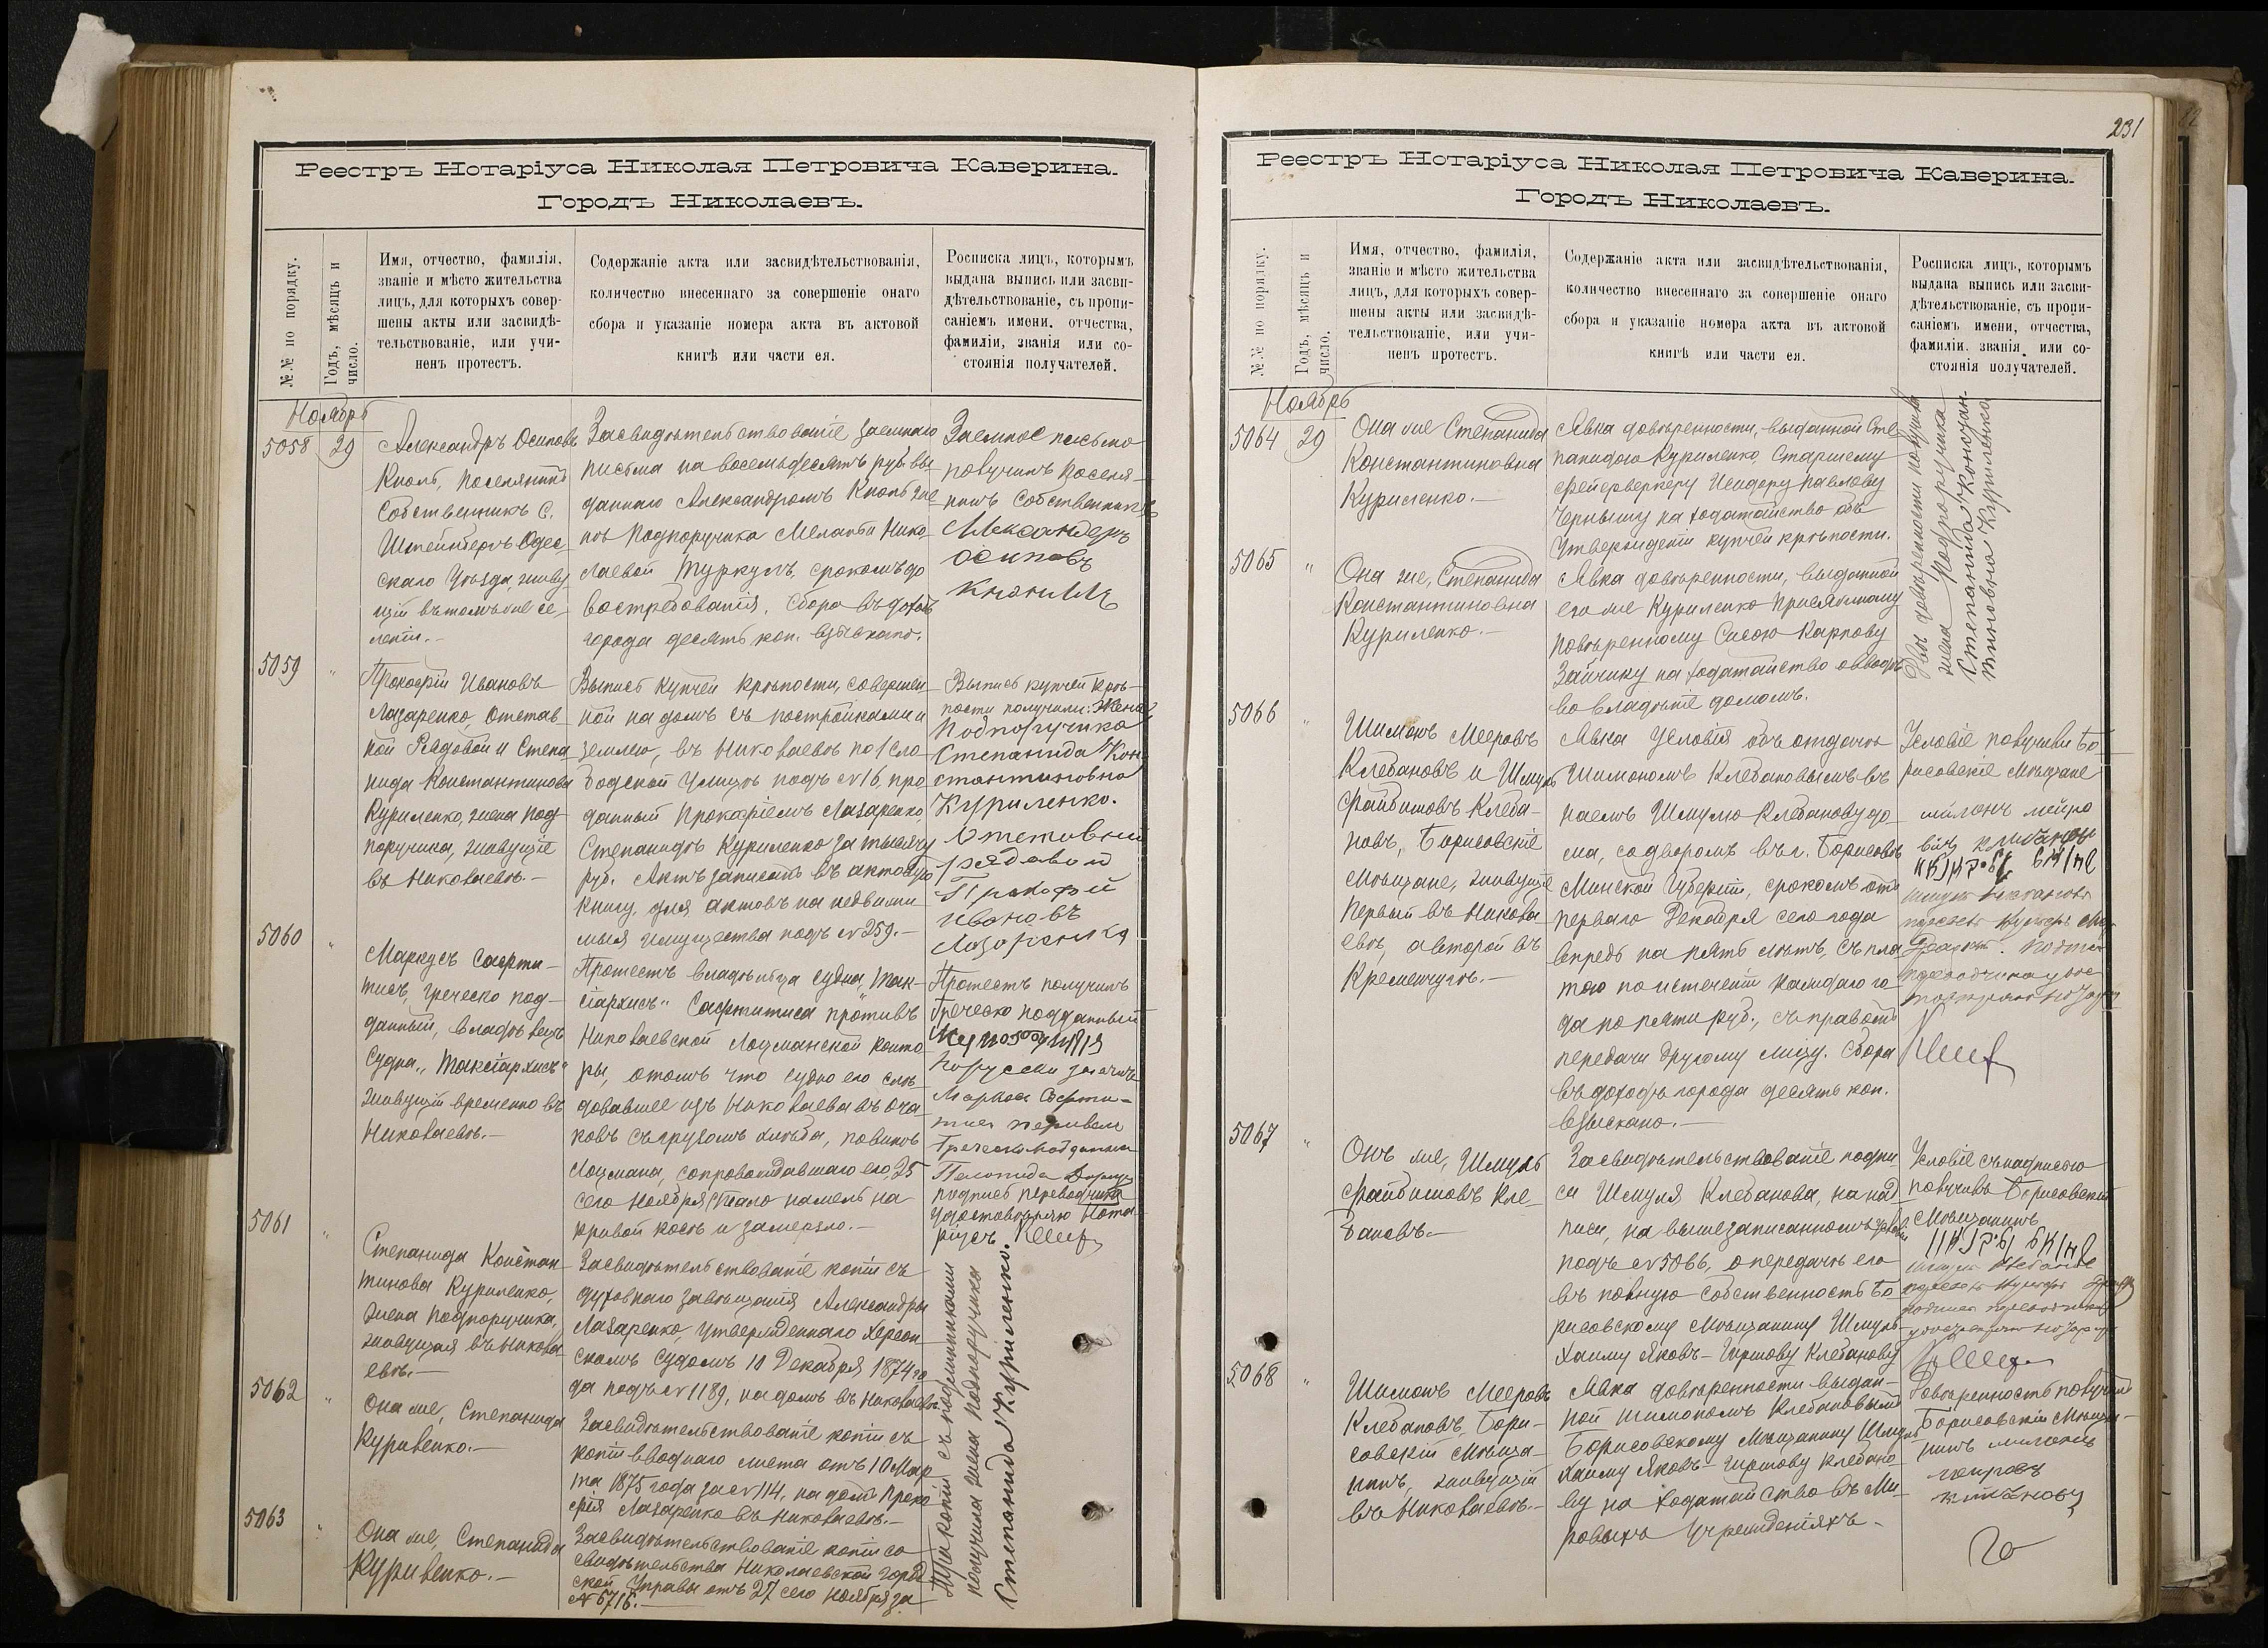 Реестръ Нотаріуса Николая Петровича Каверина.
Городъ Николаевъ.
№№ по порядку.
Годъ, мѣсяцъ и
число.
Имя, отчество, фамилія,
званіе и мѣсто жительства
лицъ, для которыхъ совер-
шены акты или засвидѣ-
тельствованіе, или учи-
ненъ протестъ.
Содержаніе акта или засвидѣтельствованія,
количество внесеннаго за совершеніе онаго
сбора и указаніе номера акта въ актовой
книгѣ или части ея.
Росписка лицъ, которымъ
выдана выпись или засви-
дѣтельствованіе, съ пропи-
саніемъ имени, отчества,
фамиліи, званія или со-
стоянія получателей.
Ноябрь
5058
29
Александръ Осиповъ
Кноль, поселянинъ
Собственникъ С.
Штейнбергъ Одес-
скаго Уѣзда, живу
щій въ томъ же се-
леніи.-
Засвидѣтельствованіе заемнаго
письма на восемьдесятъ руб. вы
даннаго Александромъ Кноль же-
нѣ Подпоручика Меланьи Нико-
лаевой Туркулъ, срокомъ до
востребованія. Сбора въ доходъ
города десять коп. взыскано.
Заемное письмо
получилъ Поселя-
нинъ Собственникъ
Александеръ
Осиповъ
5059
"
Прокофій Ивановъ
Лазаренко, Отстав-
ной Рядовой и Степа
нида Константинова
Куриленко, жена под-
поручика, живущіе
въ Николаевѣ.-
Выпись купчей крѣпости, совершен-
ной на домъ съ постройками и
землею, въ Николаевѣ по 1 Сло-
бодской улицѣ подъ № 16, про
данный Прокофіемъ Лазаренко,
Степанидѣ Куриленко за тысячу
руб. Актъ записанъ въ актовую
книгу для актовъ на недвижи
мыя имущества подъ № 259.-
Выпись купчей крѣ-
пости получили: Жена
Подпоручика
Степанида Кон
стантиновна
Куриленко.
Отставный
рядавой
Прокофей
Ивановъ
Лазаренка
5060
"
Маркусъ Сафти-
тисъ, Греческо под-
данный, владѣлецъ
Судна „Таксіархисъ"
живущій временно въ
Николаевѣ.-
Протестъ владѣльца судна „Так-
сіархисъ" Сафтитиса противъ
Николаевской Лоцманской конто
ры, о томъ что судно его слѣ-
довавшее изъ Николаева въ Оча-
ковъ съ грузомъ хлѣба, по винѣ
Лоцмана, сопровождавшаго его, 25
сего Ноября стало на мель на
кривой косѣ и замерзло.-
Протестъ получилъ
Греческо подданный
Порусски значитъ
Греческоподданный
подпись переводчика
удостовѣряю Нота-
ріусъ
5061
"
Степанида Констан-
тинова Куриленко,
жена подпоручика,
живущая въ Никола-
евѣ.-
Засвидѣтельствованіе копіи съ
духовнаго завѣщанія Александры
Лазаренко, утвержденнаго Херсон
скимъ Судомъ 10 Декабря 1874 го
да подъ № 1189, на домъ въ Николаевѣ.
5062
"
Она же, Степанида
Куриленко.-
Засвидѣтельствованіе копіи съ
копіи вводнаго листа отъ 10 Мар
та 1875 года за № 114, на домъ Проко
фія Лазаренко въ Николаевѣ.-
5063
"
Она же, Степанида
Куриленко.-
Засвидѣтельствованіе копіи со
свидѣтельства Николаевской город
ской Управы отъ 27 сего Ноября за
№ 6716.
Три копіи съ подлинниками
получила жена подпоручика
Степанида Куриленко.
231
Реестръ Нотаріуса Николая Петровича Каверина.
Городъ Николаевъ.
№№ по порядку.
Годъ, мѣсяцъ и
число.
Имя, отчество, фамилія,
званіе и мѣсто жительства
лицъ, для которыхъ совер-
шены акты или засвидѣ-
тельствованіе, или учи-
ненъ протестъ.
Содержаніе акта или засвидѣтельствованія,
количество внесеннаго за совершеніе онаго
сбора и указаніе номера акта въ актовой
книгѣ или части ея.
Росписка лицъ, которымъ
выдана выпись или засви-
дѣтельствованіе, съ пропи-
саніемъ имени, отчества,
фамиліи, званія, или со-
стоянія получателей.
Ноябрь
5064
29
Она же Степанида
Константиновна
Куриленко.-
Явка довѣренности, выданной Сте
панидою Куриленко, Старшему
фейерверкеру Исидору Павлову
Чернышу на ходатайство объ
утвержденіи купчей крѣпости.
5065
"
Она же, Степанида
Константиновна
Куриленко.-
Явка довѣренности, выданной
ею же Куриленко Присяжному
повѣренному Сысою Карпову
Зайчику на ходатайство о вводѣ
во владѣніе домомъ.
Двѣ довѣренности получила
жена подпоручика
Степанида Констан
тиновна Куриленко
5066
"
Шимонъ Мееровъ
Клебановъ и Шмуль
Файбишовъ Клеба-
новъ, Борисовскіе
Мѣщане, живущіе
первый въ Никола
евѣ, а второй въ
Кременчугѣ.-
Явка Условія объ отдачѣ
Шимономъ Клебановымъ въ
наемъ Шмулю Клебанову до
ма, со дворомъ въ г. Борисовѣ
Минской Губерніи, срокомъ отъ
перваго Декабря сего года
впредь на пять лѣтъ, съ пла
тою по истеченіи каждаго го
да по пяти руб., съ правомъ
передачи другому лицу. Сбора
въ доходъ города десять коп.
взыскано.-
Условіе получили Бо-
рисовскіе Мѣщане
5067
"
Онъ же, Шмуль
Файбишовъ Кле-
бановъ.-
Засвидѣтельствованіе подпи
си Шмуля Клебанова, на над
писи, на вышезаписанномъ условіи
подъ № 5066, о передачѣ его
въ полную собственность Бо
рисовскому Мѣщанину Шмуль-
Хаиму Яковъ-Гиршову Клебанову
Условіе съ надписью
получилъ Борисовскій
Мѣщанинъ
5068
"
Шимонъ Мееровъ
Клебановъ, Бори-
совскій Мѣща-
нинъ, живущій
въ Николаевѣ.-
Явка довѣренности выдан-
ной Шимономъ Клебановымъ
Борисовскому Мѣщанину Шмуль
Хаиму Яковъ-Гиршову Клебано
ву на ходатайство въ Ми-
ровыхъ Учрежденіяхъ.-
Довѣренность получилъ
Борисовскій Мѣща-
нинъ